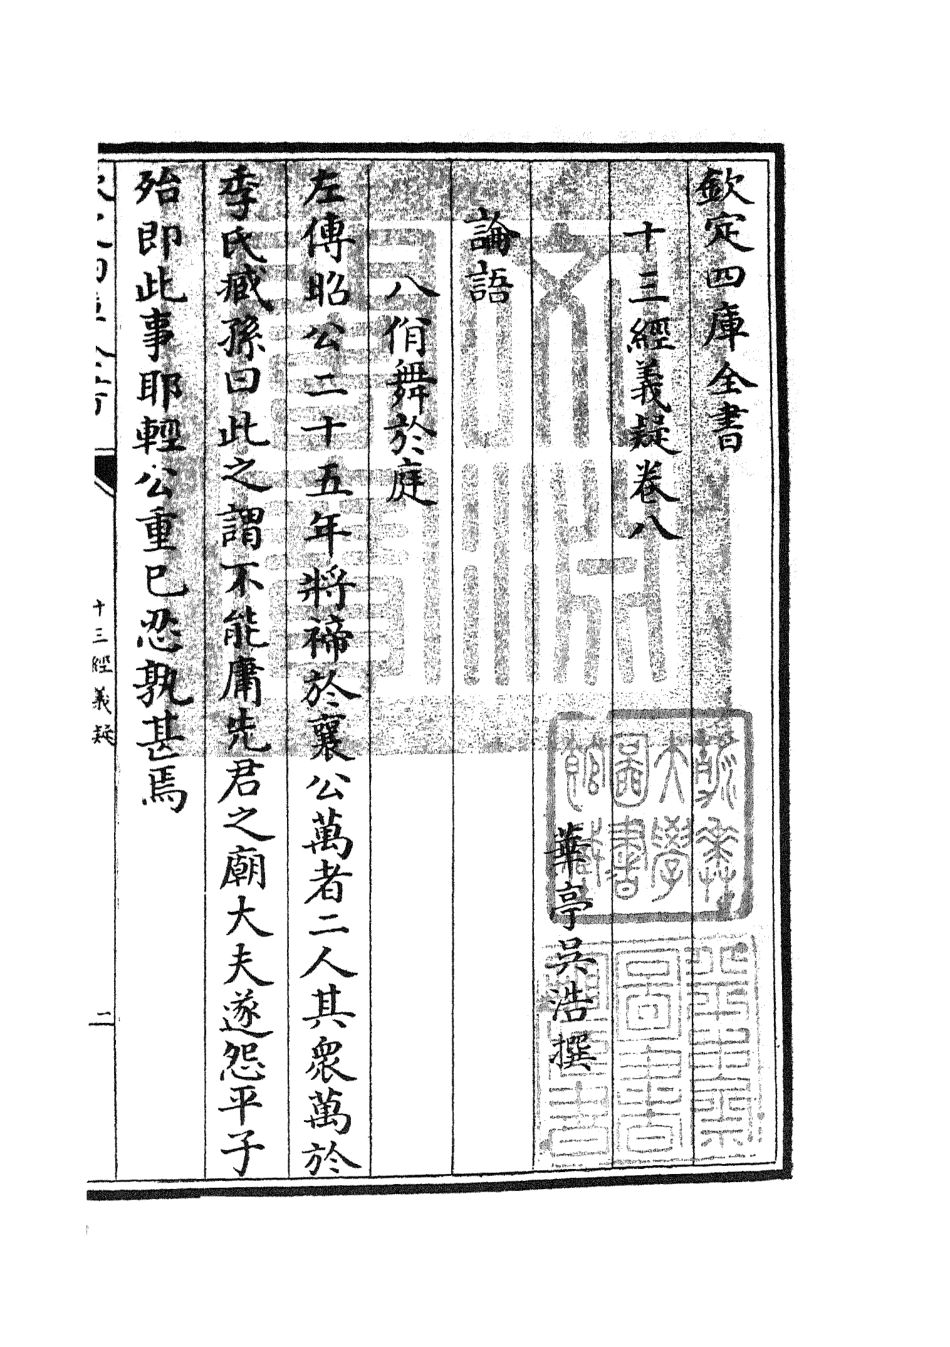 欽定四庫全書
十三經義疑卷八
華亭吳浩撰
論語
八佾舞於庭
左傳昭公二十五年將禘於襄公萬者二人其衆萬於
季氏臧孫曰此之謂不能庸先君之廟大夫遂怨平子
殆即此事耶輕公重已忍孰甚焉
十三經義疑